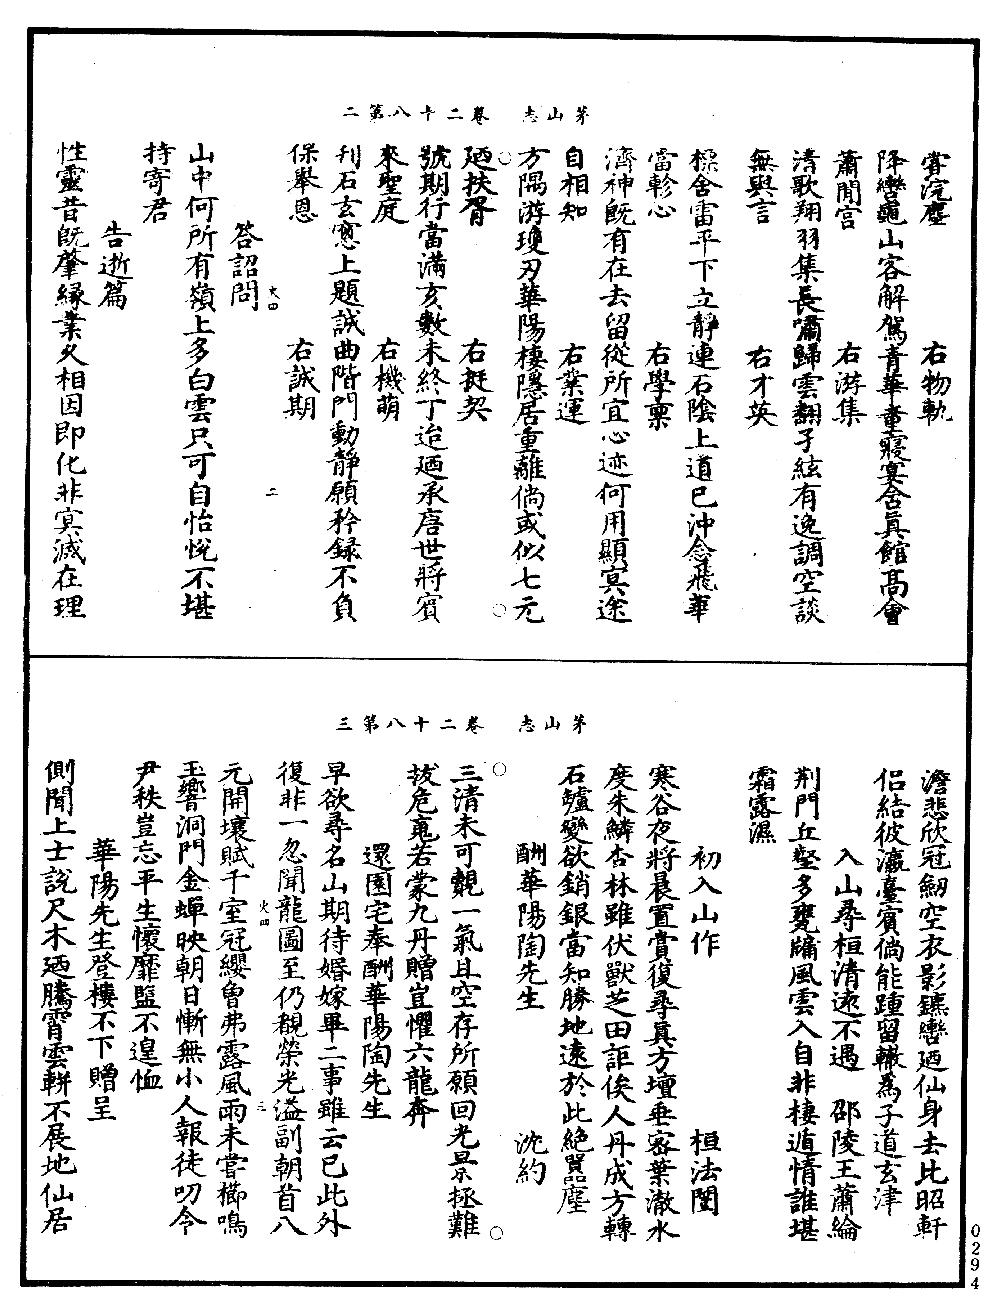 茅山志　卷二十八第二
甞浣塵　右物軌
降轡龜山客解駕青華童寢宴舍眞館高會
蕭閒宫　右游集
清歌翔羽集長嘯歸雲翻子絃有逸調空談
無與言　右才英
標舍雷平下立靜連石陰上道已沖念飛華
當軫心　右學稟
濟神旣有在去留從所宜心迹何用顯冥途
自相知　右業運
方隅游瓊刃華陽棲隱居重離倘或似七元
廼扶胥　右挺契
號期行當滿亥數未終丁迨廼承唐世將賓
來聖庭　右機萌
刊石玄窓上題誠曲階門動靜願矜録不負
保舉恩　右誠期
答詔問
火四
二
山中何所有嶺上多白雲只可自怡悅不堪
持寄君
告逝篇
性靈昔旣肇縁業久相因即化非冥滅在理
茅山志　卷二十八第三
澹悲欣冠劒空衣影鑣轡廼仙身去比昭軒
侣結彼瀛臺賓倘能踵留轍爲子道玄津
入山尋桓清遠不遇　邵陵王蕭綸
荆門丘壑多甕牖風雲入自非棲遁情誰堪
霜露濕
初入山作　桓法闓
寒谷夜將晨置賞復尋眞方壇垂密葉澈水
度朱鱗杏林雖伏獸芝田詎俟人丹成方轉
石鑪變欲銷銀當知勝地遠於此絶嚚塵
酬華陽陶先生　沈約
三清未可覿一氣且空存所願回光景拯難
拔危䰟若蒙九丹贈豈懼六龍奔
還園宅奉酬華陽陶先生
早欲尋名山期待婚嫁畢二事雖云已此外
復非一忽聞龍圖至仍覩榮光溢副朝首八
火四
三
元開壤賦千室冠纓曾弗露風雨未嘗櫛鳴
玉響洞門金蟬映朝日慚無小人報徒叨令
尹秩豈忘平生懷靡盬不遑恤
華陽先生登樓不下贈呈
側聞上士說尺木廼騰霄雲軿不展地仙居
0294